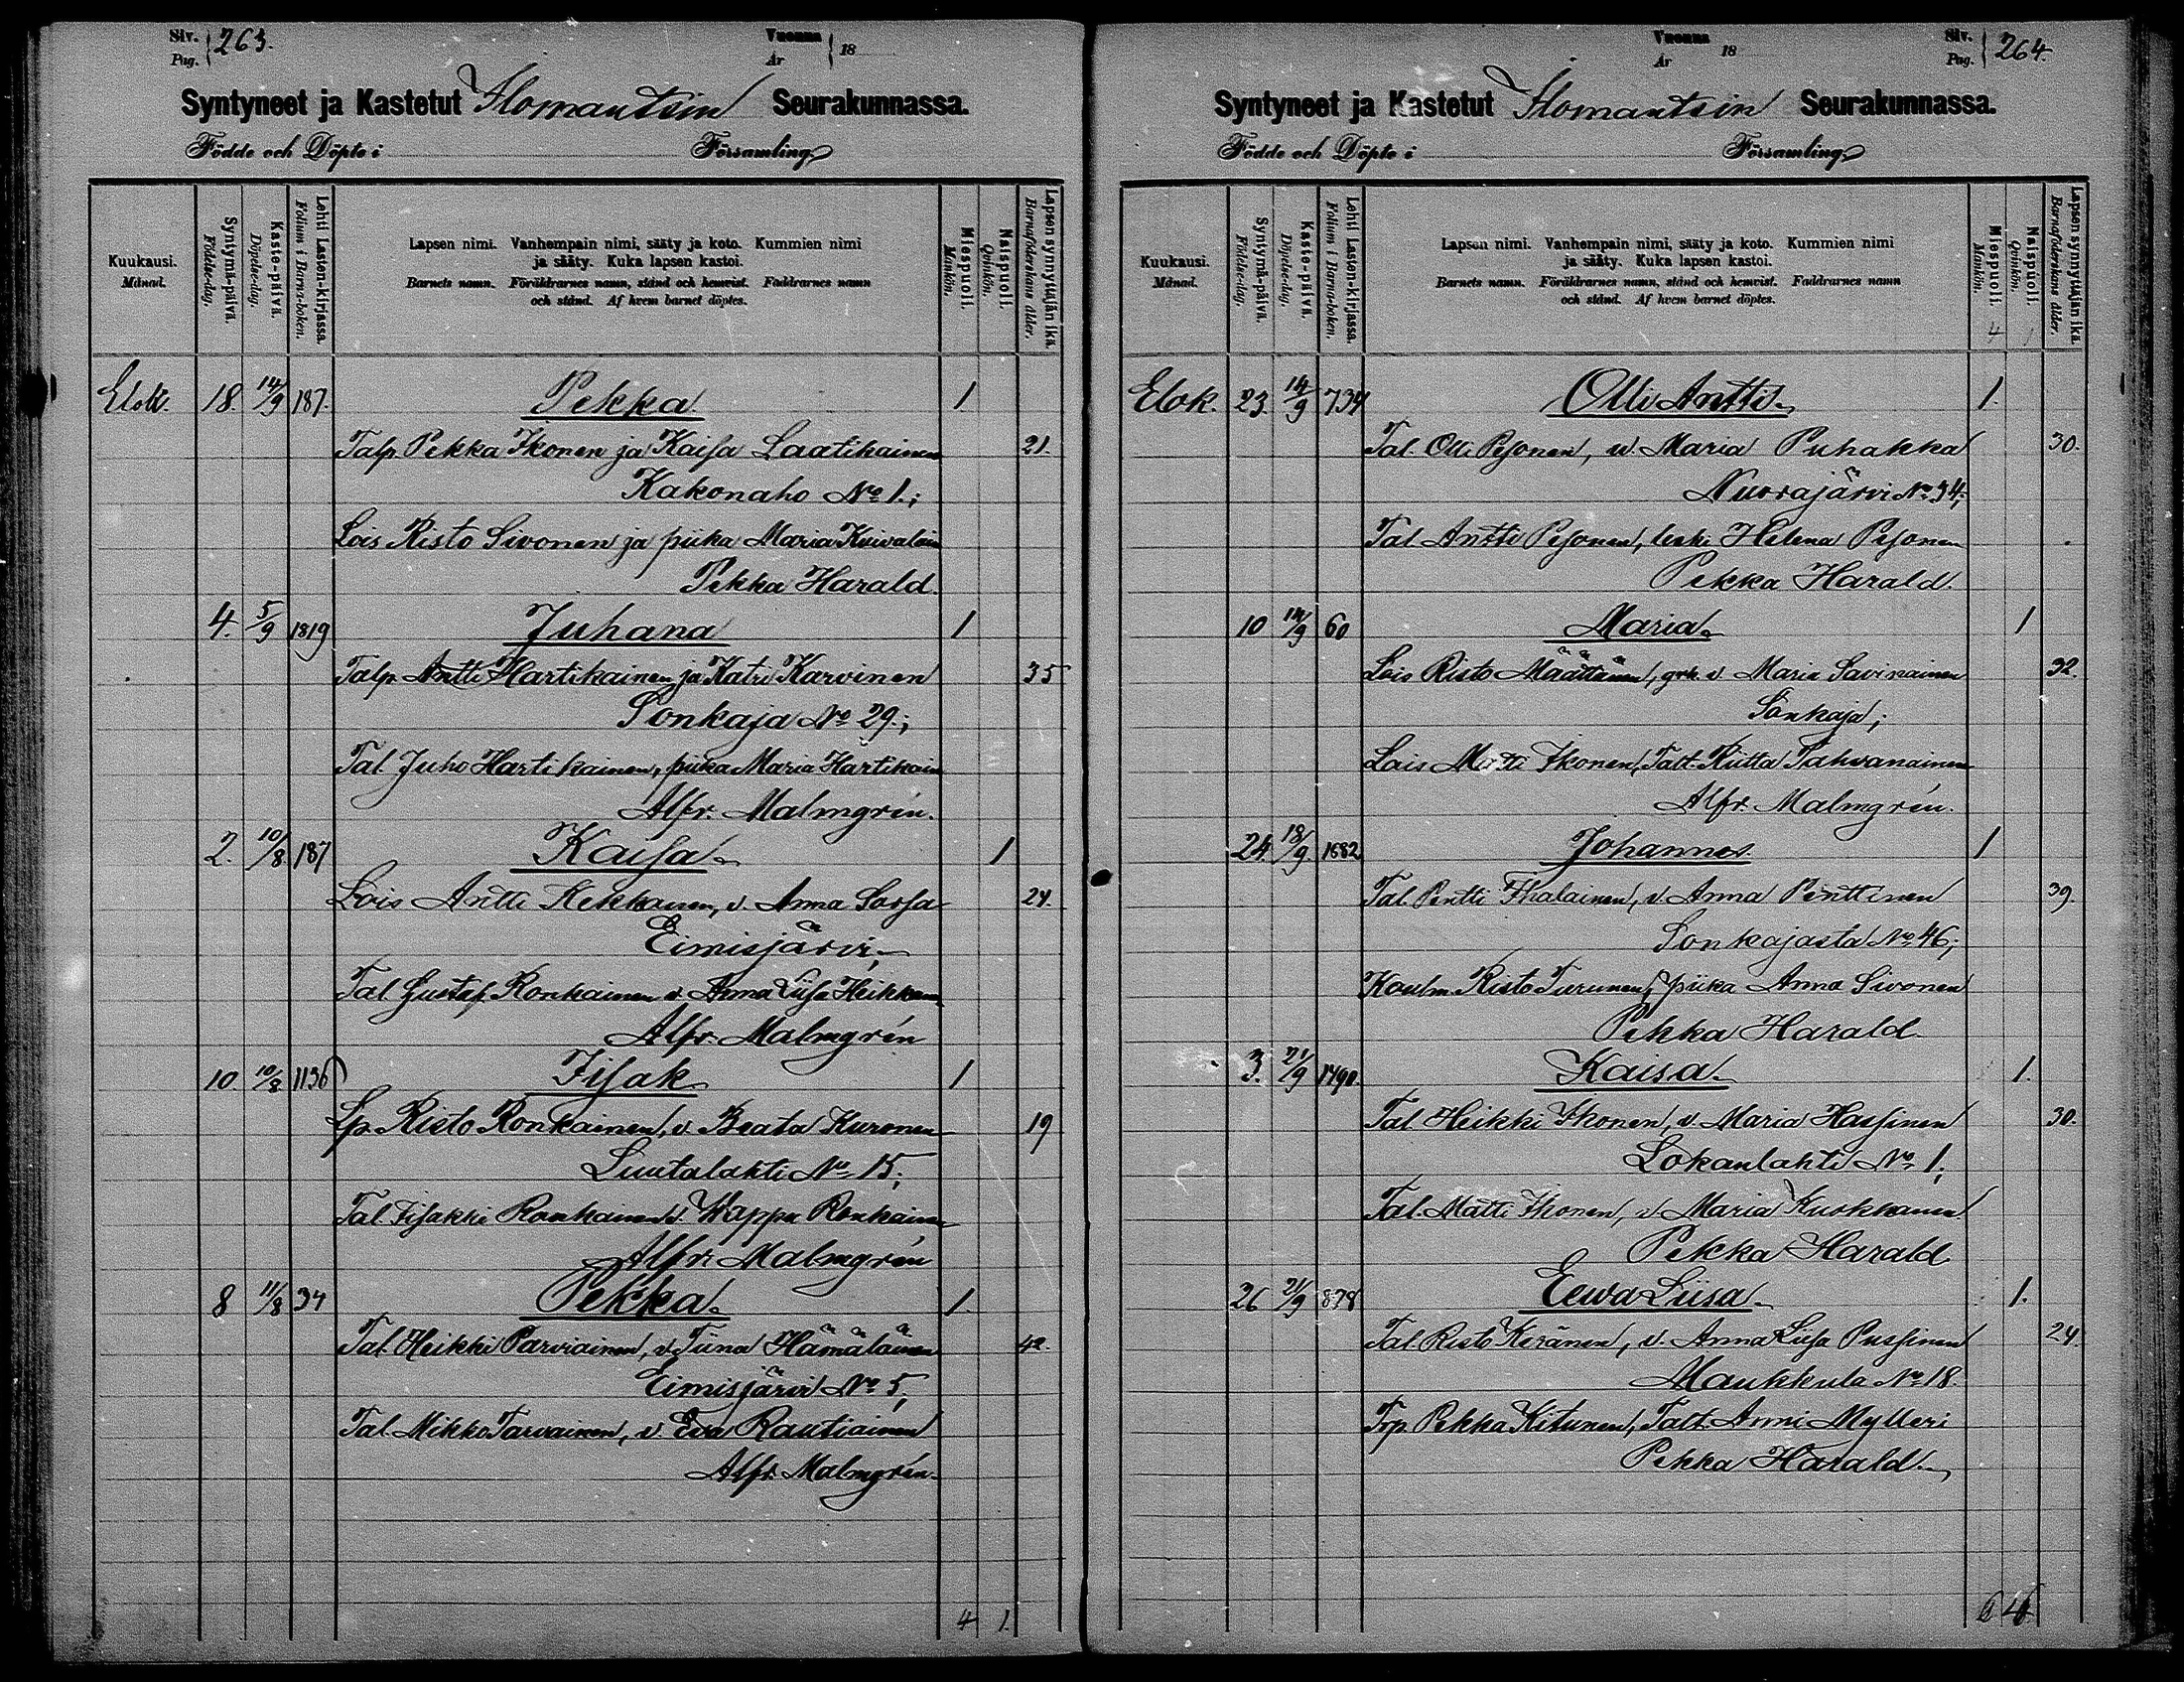 Siv. Pag. } 263.
Vuonna År } 18
Syntyneet ja Kastetut Ilomantsin Seurakunnassa.
Födde och Döpte i Församling
Kuukausi. Månad.
Syntymä-päivä. Födelse-dag.
Kaste-päivä. Döpelse-dag.
Lehti Lasten-kirjassa. Folium i Barna-boken.
Lapsen nimi. Vanhempain nimi, sääty ja koto. Kummien nimi
ja sääty. Kuka lapsen kastoi.
Barnets namn. Föräldrarnes namn, stånd och hemvist. Faddrarnes namn
och stånd. Af hvem barnet döptes.
Miespuoli. Mankön.
Naispuoli. Qvinkön.
Lapsen synnyttäjän ikä. Barnaföderskans ålder.
Elok. 18. 14/9 187. Pekka 1
Talp. Pekka Ikonen ja Kaisa Laatikainen 21.
Kakonaho No 1.;
Lois Risto Sivonen ja piika Maria Kuivalain
Pekka Harald.
4. 5/9 1819 Juhana 1
Talp. Antti Hartikainen ja Katri Karvinen 35
Sonkaja No 29.;
Tal. Juho Hartikainen, piika Maria Hartikain
Alfr. Malmgrén.
2. 10/8 187 Kaisa 1
Lois Antti Kekkonen, v. Anna Sorsa 24.
Eimisjärvi;
Tal. Gustaf Ronkainen v. Anna Liisa Heikkan
Alfr. Malmgrén
10 10/8 1136 Iisak 1
Lp. Risto Ronkainen, v. Beata Kuronen 19
Luutalahti No 15;
Tal. Iisakki Ronkainen v. Wappu Ronkainen
Alfr. Malmgrén
8 11/8 34 Pekka. 1.
Tal. Heikki Parviainen, v. Tiina Hämäläinen 42.
Eimisjärvi No 5;
Tal. Mikko Tarvainen, v. Eva Rautiainen
Alfr. Malmgrén.
4 1.
Vuonna År 18
Siv. Pag. } 264.
Syntyneet ja Kastetut Ilomantsin Seurakunnassa.
Födde och Döpte i Församling
Kuukausi. Månad.
Syntymä-päivä. Födelse-dag.
Kaste-päivä. Döpelse-dag.
Lehti Lasten-kirjassa. Folium i Barna-boken.
Lapsen nimi. Vanhempain nimi, sääty ja koto. Kummien nimi
ja sääty. Kuka lapsen kastoi.
Barnets namn. Föräldrarnes namn, stånd och hemvist. Faddrarnes namn
och stånd. Af hvem barnet döptes.
Miespuoli. Mankön.
Naispuoli. Qvinkön.
Lapsen synnyttäjän ikä. Barnaföderskans ålder.
4 1
Elok. 23. 14/9 734 Olli Antti 1.
Tal. Olli Pesonen, v. Maria Puhakka 30.
Nuorajärvi No 34;
Tal. Antti Pesonen, leski Helena Pesonen
Pekka Harald.
10 14/9 60 Maria. 1
Lois Risto Määttänen, grk. v. Maria Savinainen 32.
Sonkaja;
Lois Matti Ikonen, Talt. Riitta Pahvanainen
Alfr. Malmgrén.
24. 18/9. 1882 Johannes 1
Tal. Pentti Ihalainen, v. Anna Penttinen 39.
Sonkajasta No 46;
Koulm. Risto Turunen, piika Anna Sivonen
Pekka Harald.
3. 21/9 1490. Kaisa. 1.
Tal. Heikki Ikonen, v. Maria Hassinen 30.
Lokanlahti No 1;
Tal. Matti Ikonen, v. Maria Kuokkanen
Pekka Harald
26 21/9 878 Eewa Liisa. 1.
Tal. Risto Keränen, v. Anna Liisa Pussinen 24.
Maukkula No 18.
Trp. Pekka Kitunen, Talt. Anni Mylleri
Pekka Harald.
6 4